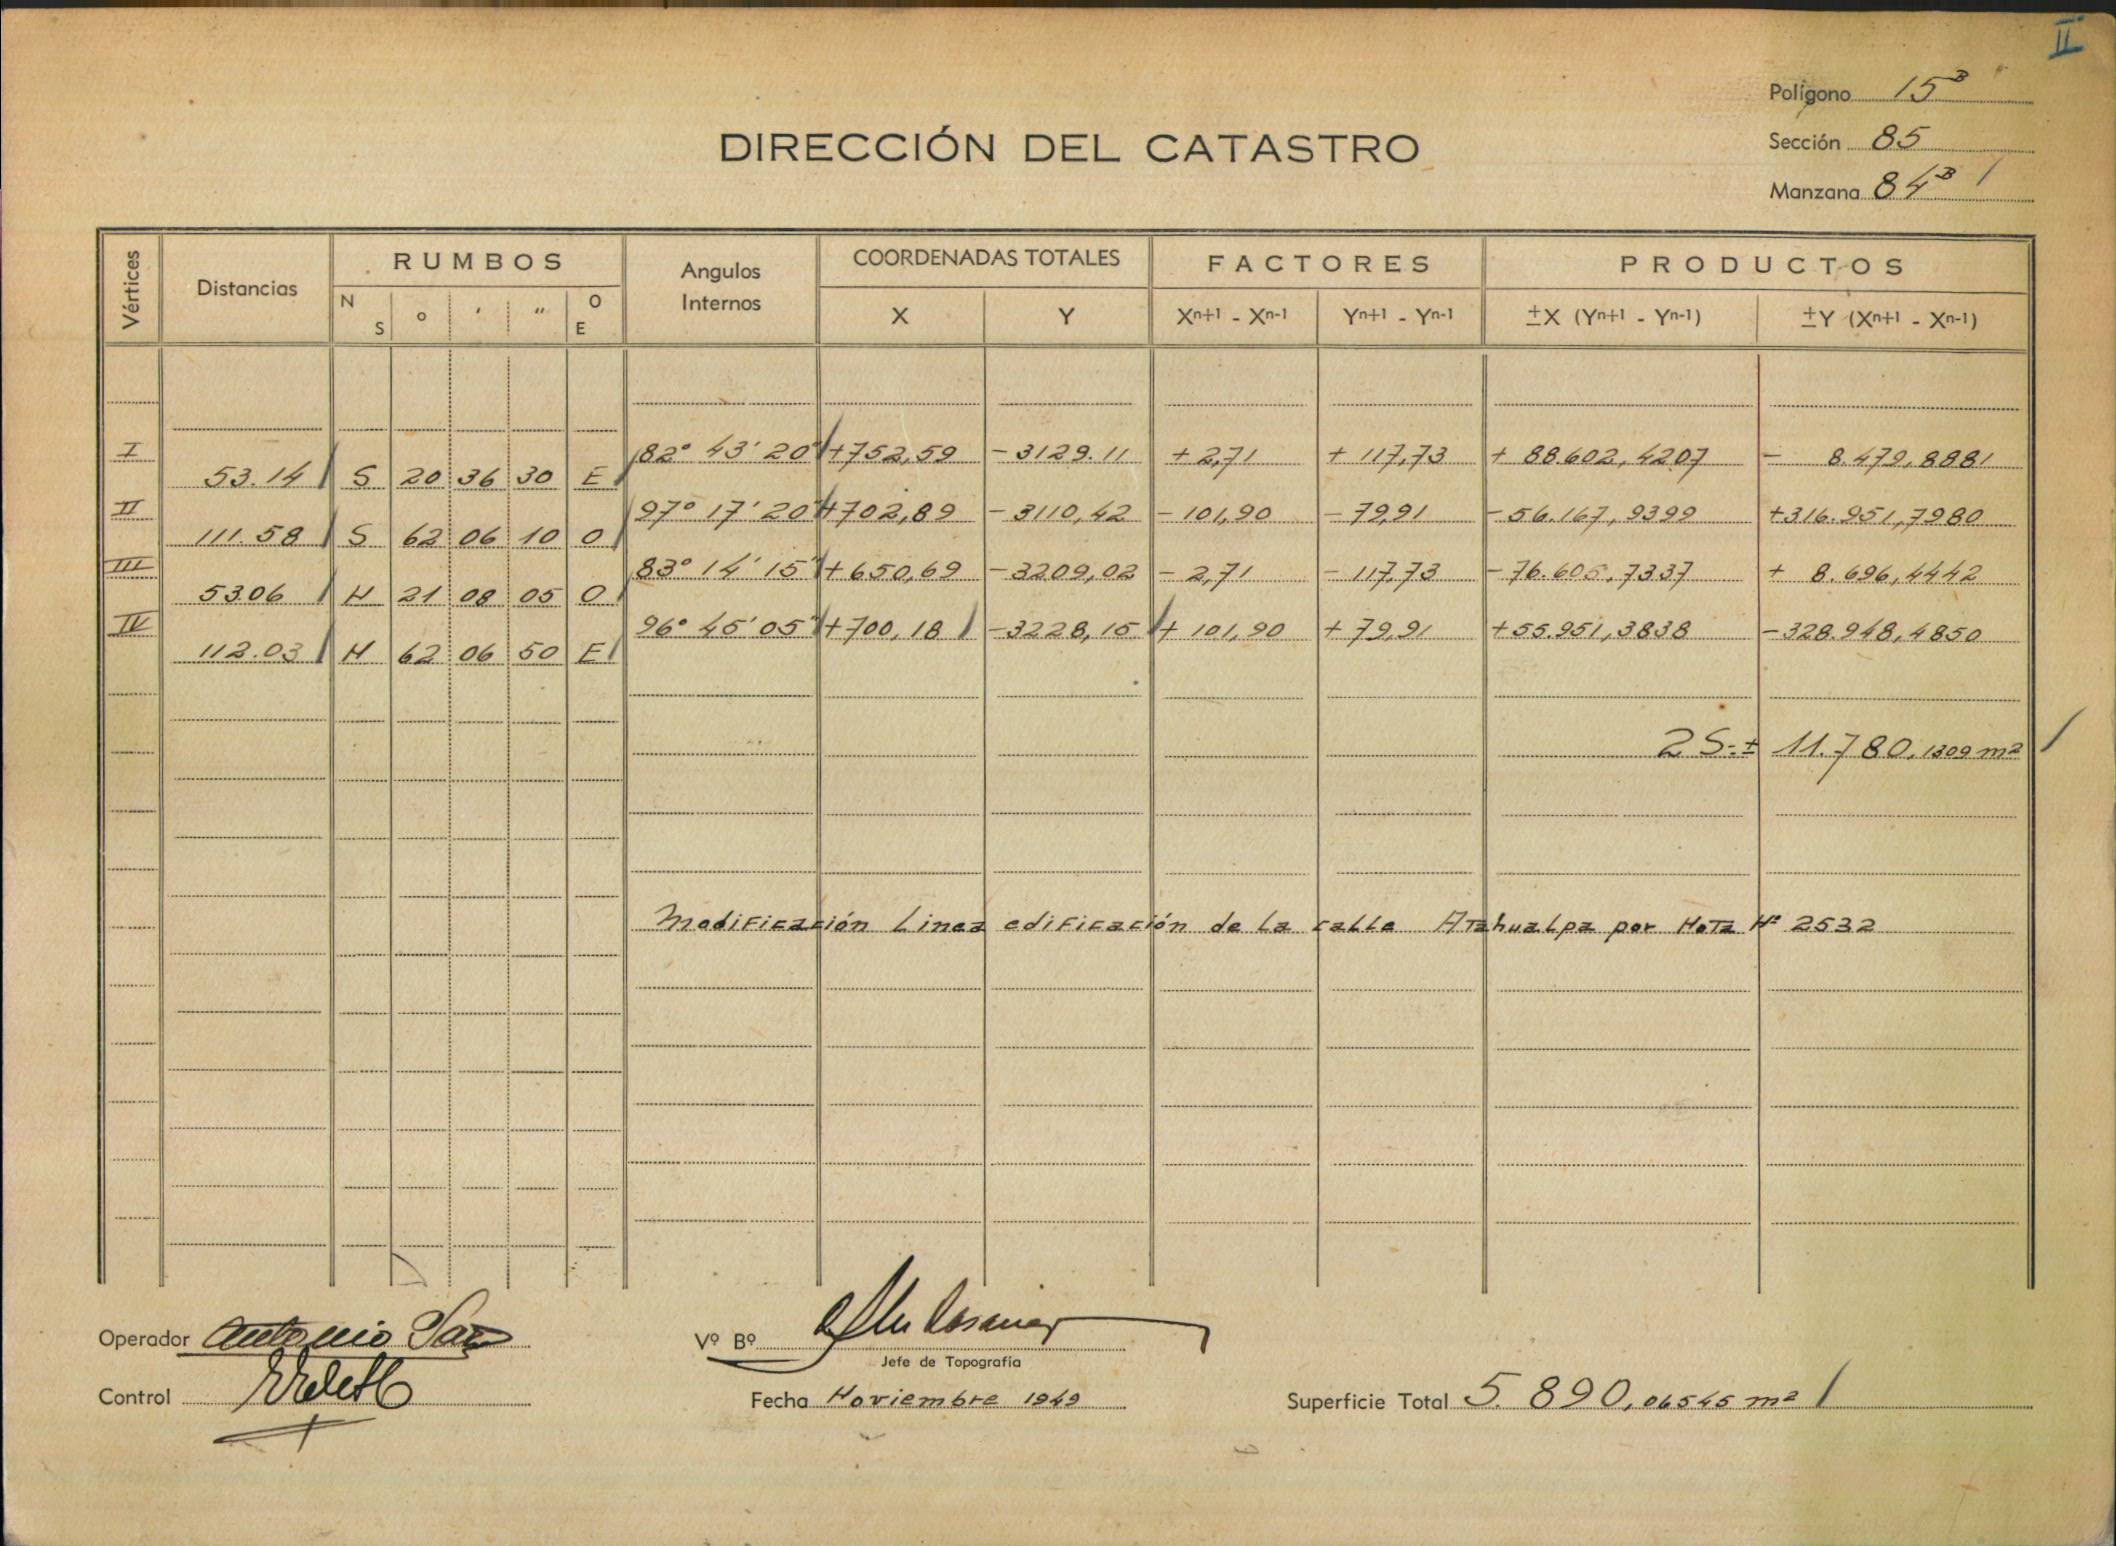 II
Polígono 15ᴮ
Sección 85
Manzana 84ᴮ
DIRECCIÓN DEL CATASTRO
Vértices Distancias RUMBOS Angulos Internos COORDENADAS TOTALES FACTORES PRODUCTOS
N S o ′ ″ O E X Y Xⁿ⁺¹ - Xⁿ⁻¹ Yⁿ⁺¹ - Yⁿ⁻¹ ±X (Yⁿ⁺¹ - Yⁿ⁻¹) ±Y (Xⁿ⁺¹ - Xⁿ⁻¹)
I 82° 43' 20" +752,59 -3129.11 +2,71 +117,73 +88.602,4207 -8.479,8881
53.14 S 20 36 30 E
II 97° 17' 20" +702,89 -3110,42 -101,90 -79,91 -56.167,9399 +316.951,7980
111.58 S 62 06 10 O
III 83° 14' 15" +650,69 -3209,02 -2,71 -117,73 -76.605,7337 +8.696,4442
53.06 N 21 08 05 O
IV 96° 45' 05" +700,18 -3228,15 +101,90 +79,91 +55.951,3838 -328.948,4850
112.03 N 62 06 50 E
2S=± 11.780,1309 m²
Modificación Linea edificación de la calle Atahualpa por Nota Nº 2532
Operador Antonio
Vº Bº
Jefe de Topografía
Control
Fecha Noviembre 1949
Superficie Total 5.890,06545 m²